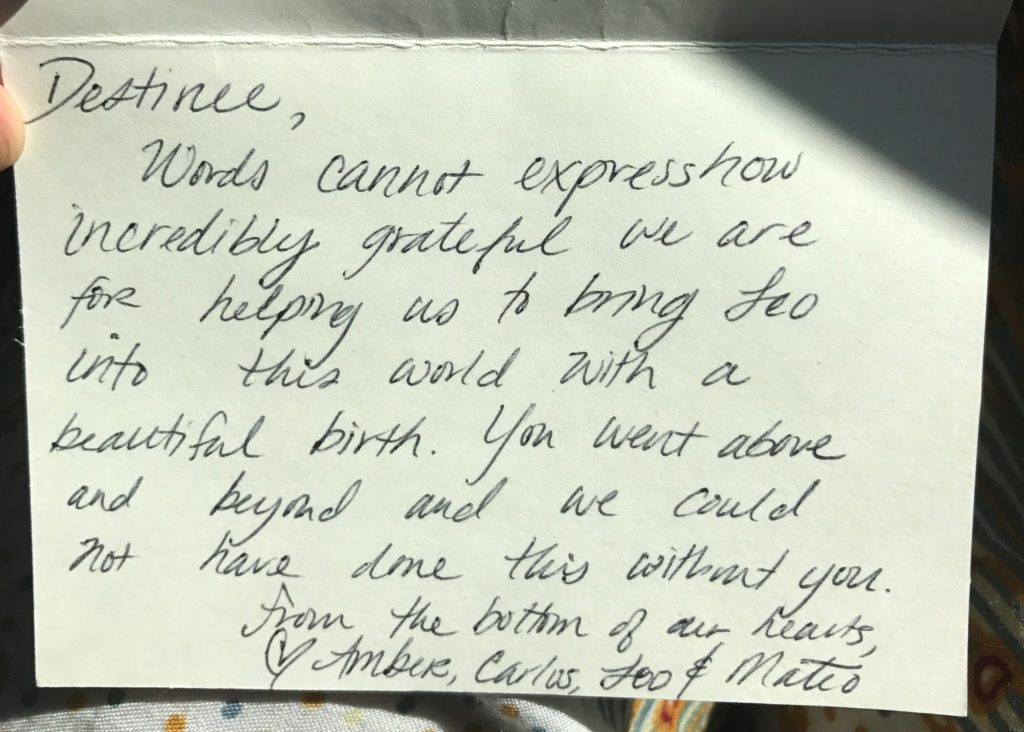 Destinee,
Words cannot express how
incredibly grateful we are
for helping us to bring Leo
into this world with a
beautiful birth. You went above
and beyond and we could
not have done this without you.
From the bottom of our hearts,
♡ Amber, Carlos, Leo & Mateo